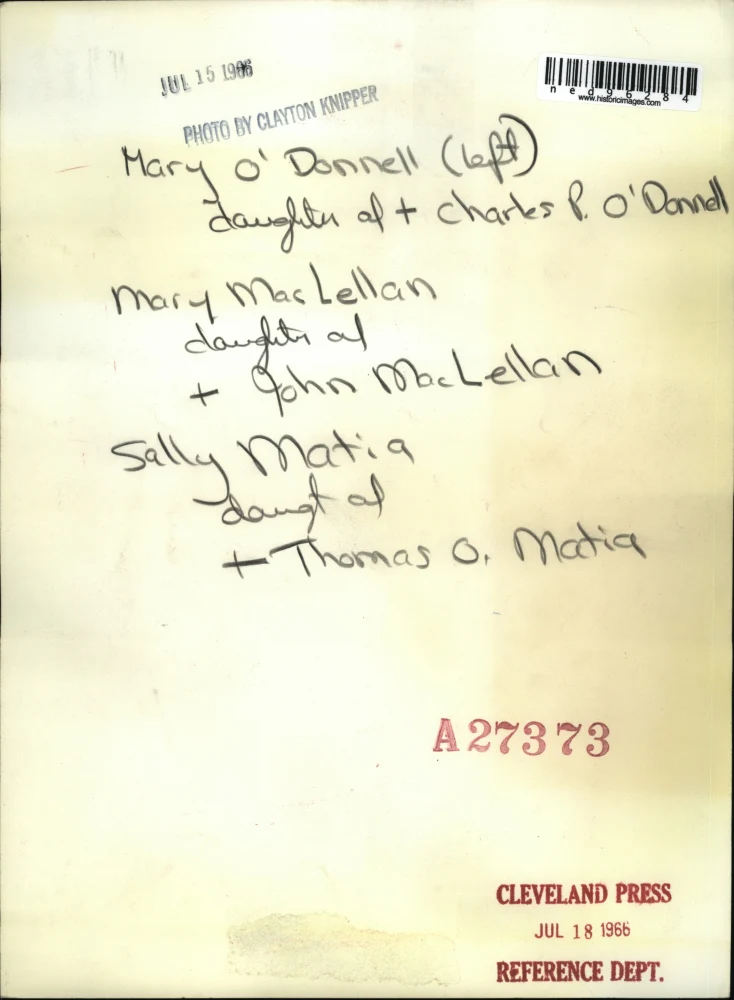 JUL 15 1966
PHOTO BY CLAYTON KNIPPER
ned96284
www.historicimages.com
Mary O'Donnell (left)
daughter of + Charles P. O'Donnell
Mary MacLellan
daughter of
+ John MacLellan
Sally Matia
daugt of
+ Thomas O. Matia
A27373
CLEVELAND PRESS
JUL 18 1966
REFERENCE DEPT.